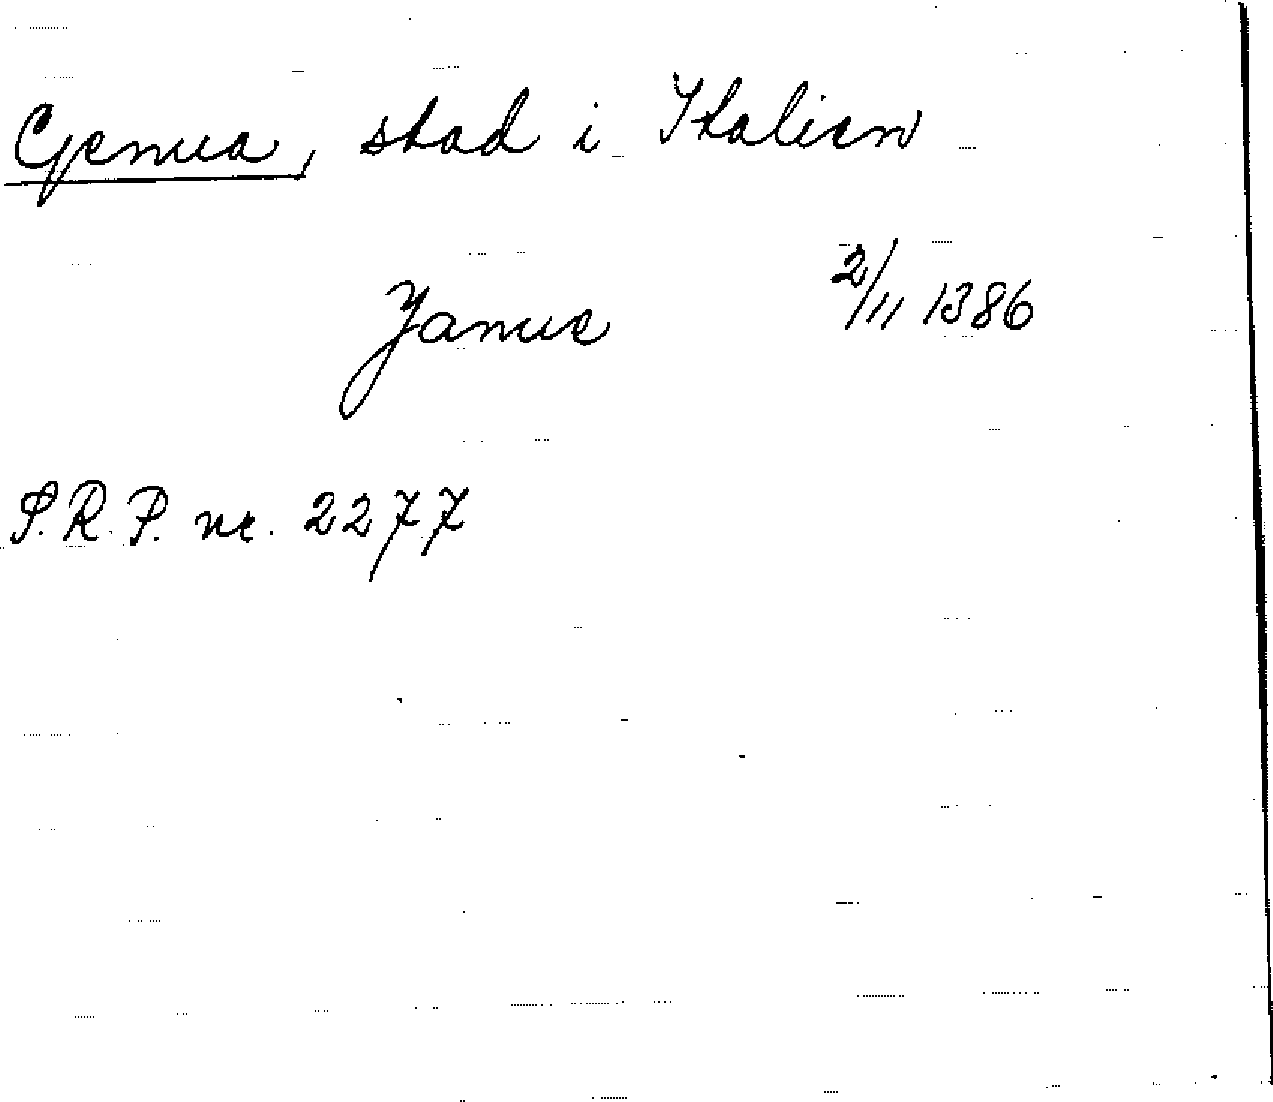 Genua, stad i Italien
Janue 2/11 1386
S.R.P. nr. 2277